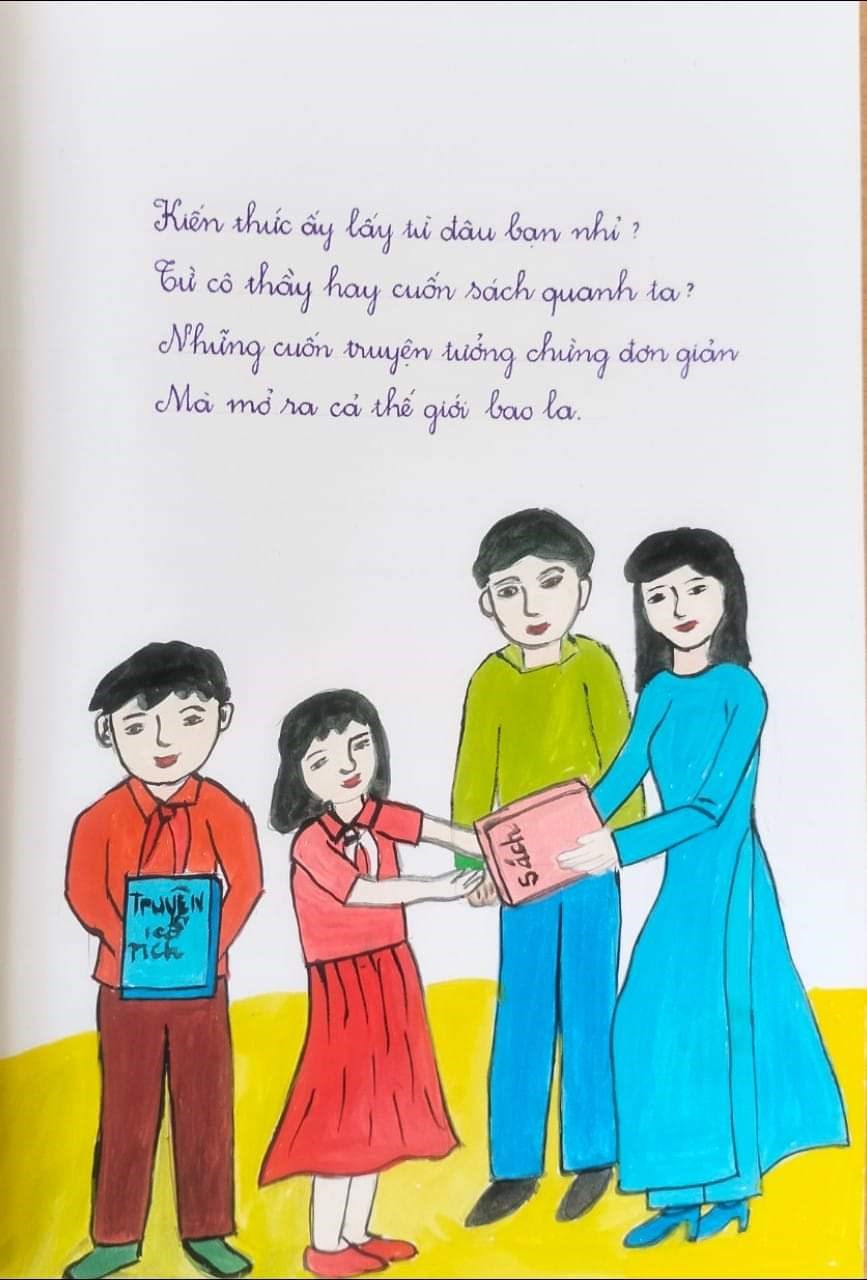 Kiến thức ấy lấy từ đâu bạn nhỉ ?
Từ cô thầy hay cuốn sách quanh ta ?
Những cuốn truyện tưởng chừng đơn giản
Mà mở ra cả thế giới bao la.
Sách
TRUYỆN
cổ
TÍCH